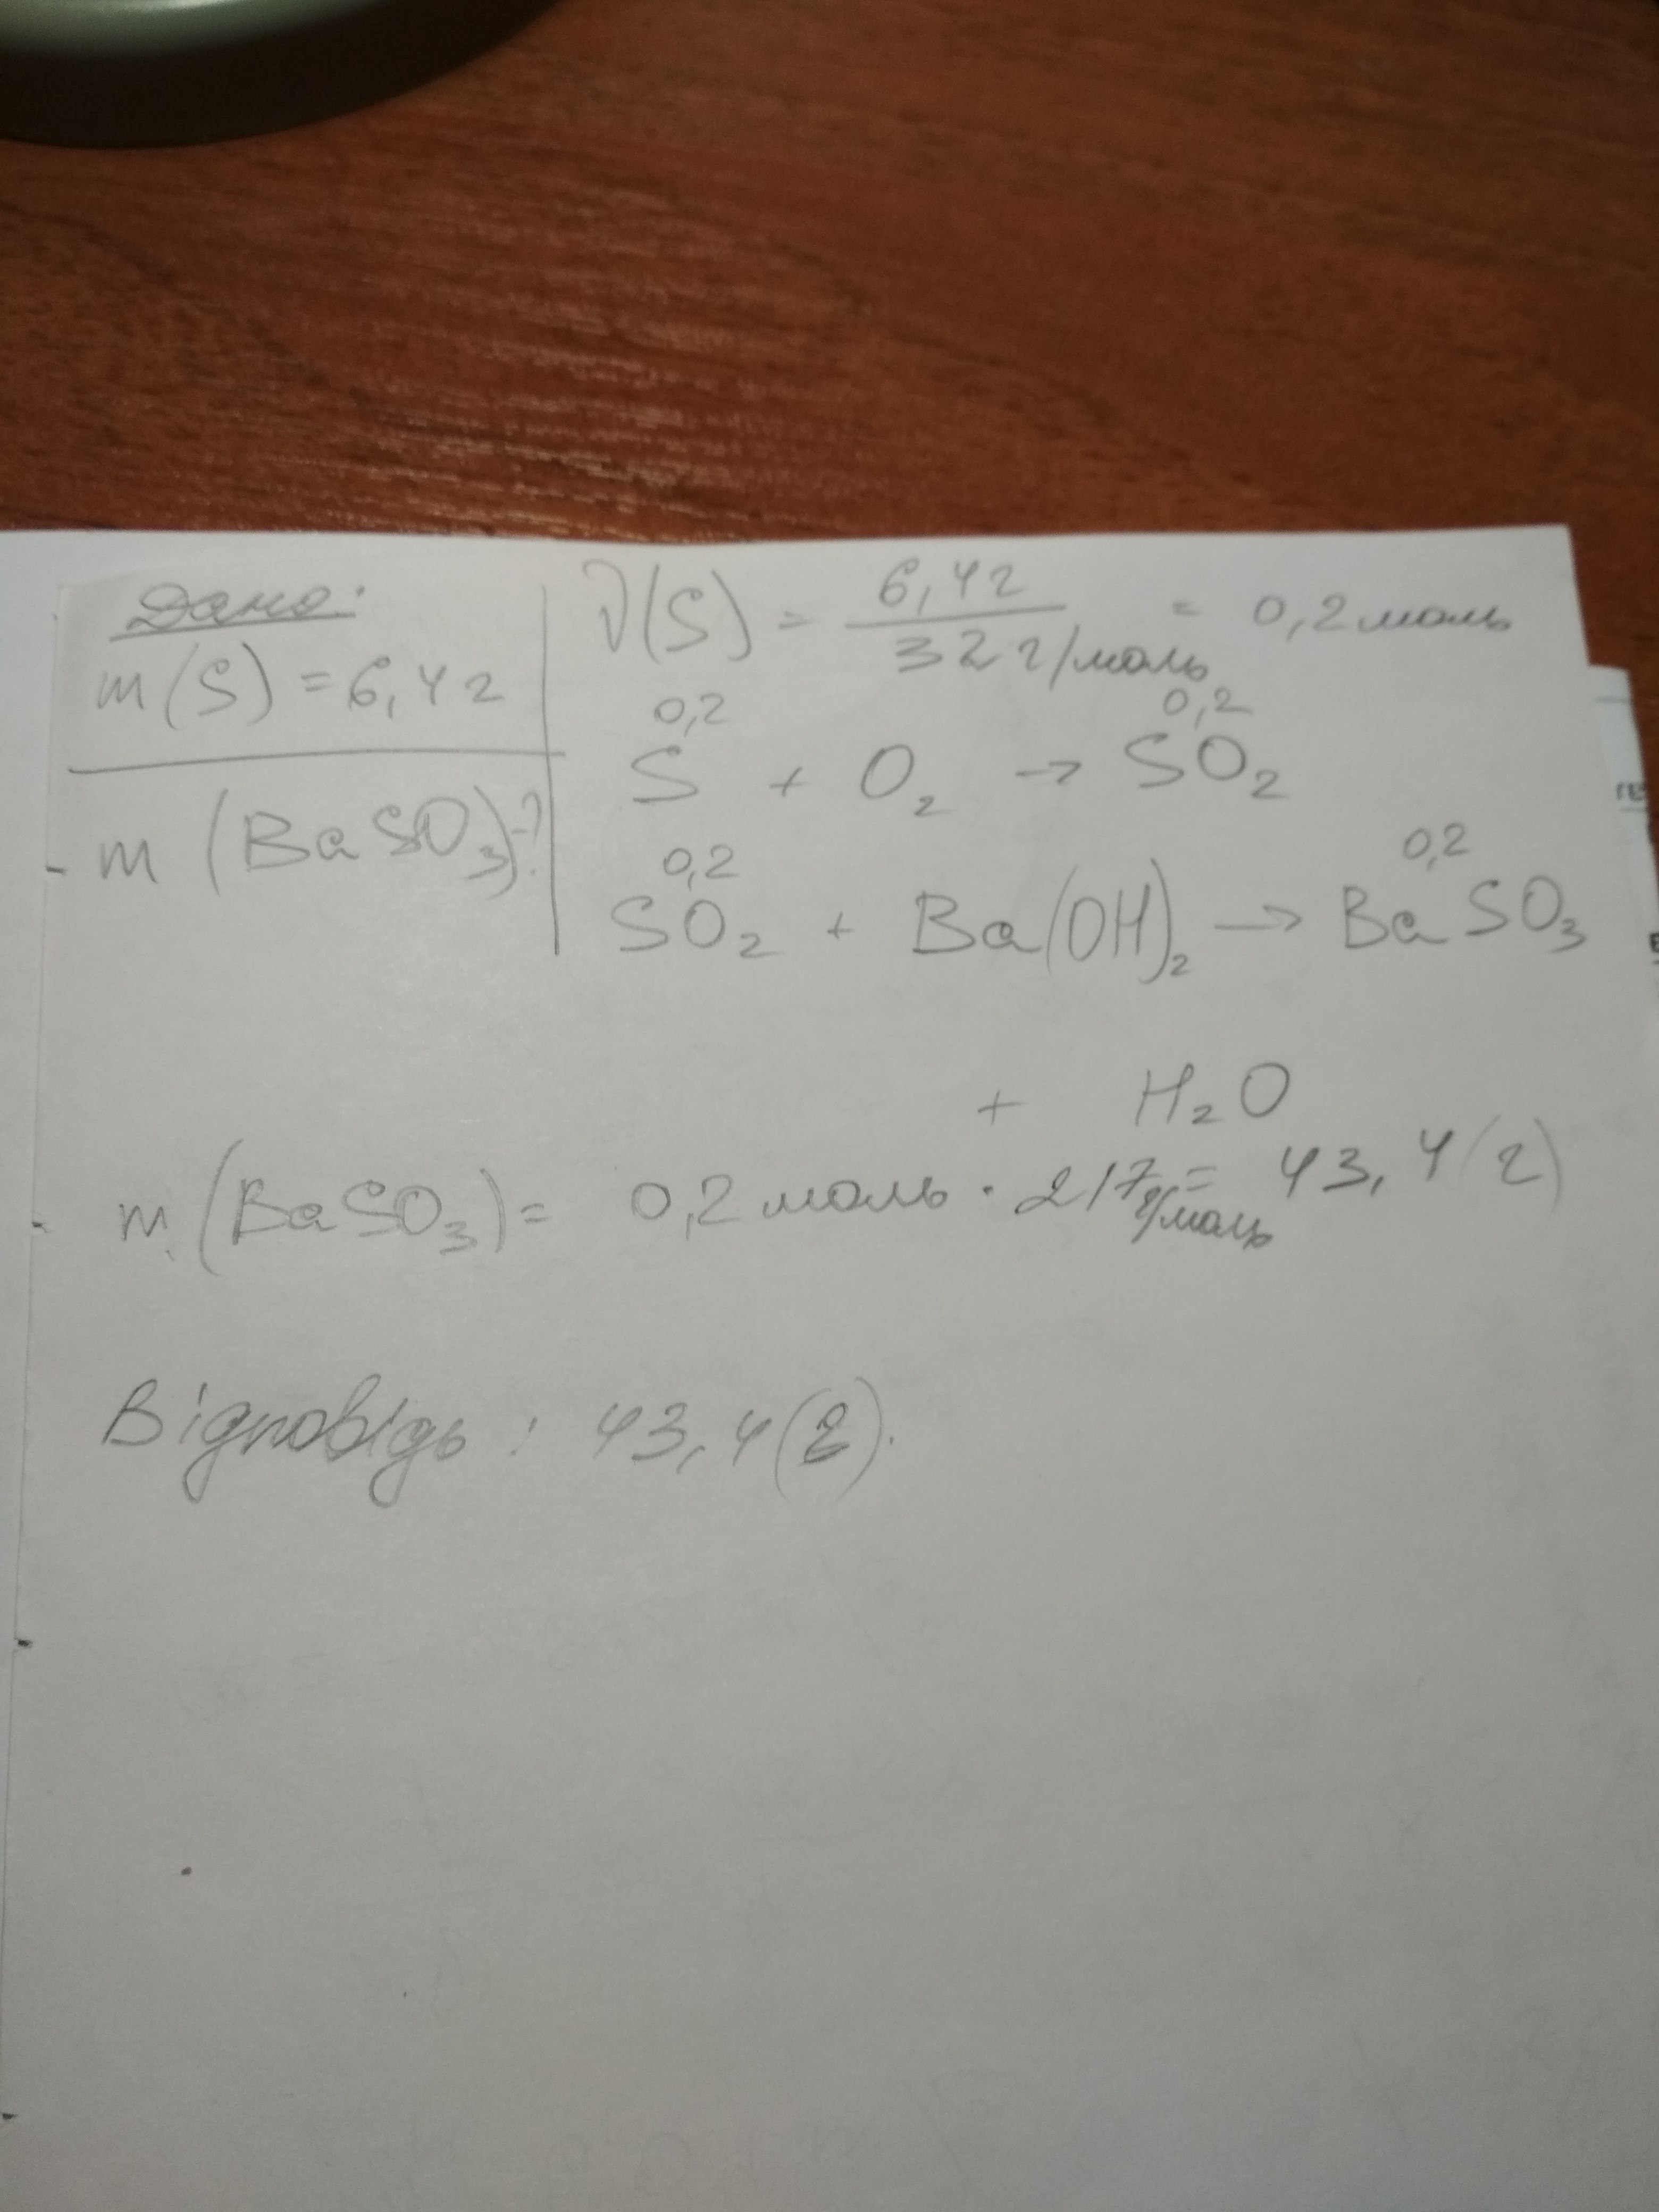 Дано:
m(S) = 6,4г
m(BaSO₃)-?
ν(S) = 6,4г / 32г/моль = 0,2моль
0,2 0,2
S + O₂ → SO₂
0,2 0,2
SO₂ + Ba(OH)₂ → BaSO₃
+ H₂O
m(BaSO₃) = 0,2моль · 217г/моль = 43,4(г)
Відповідь: 43,4(г).